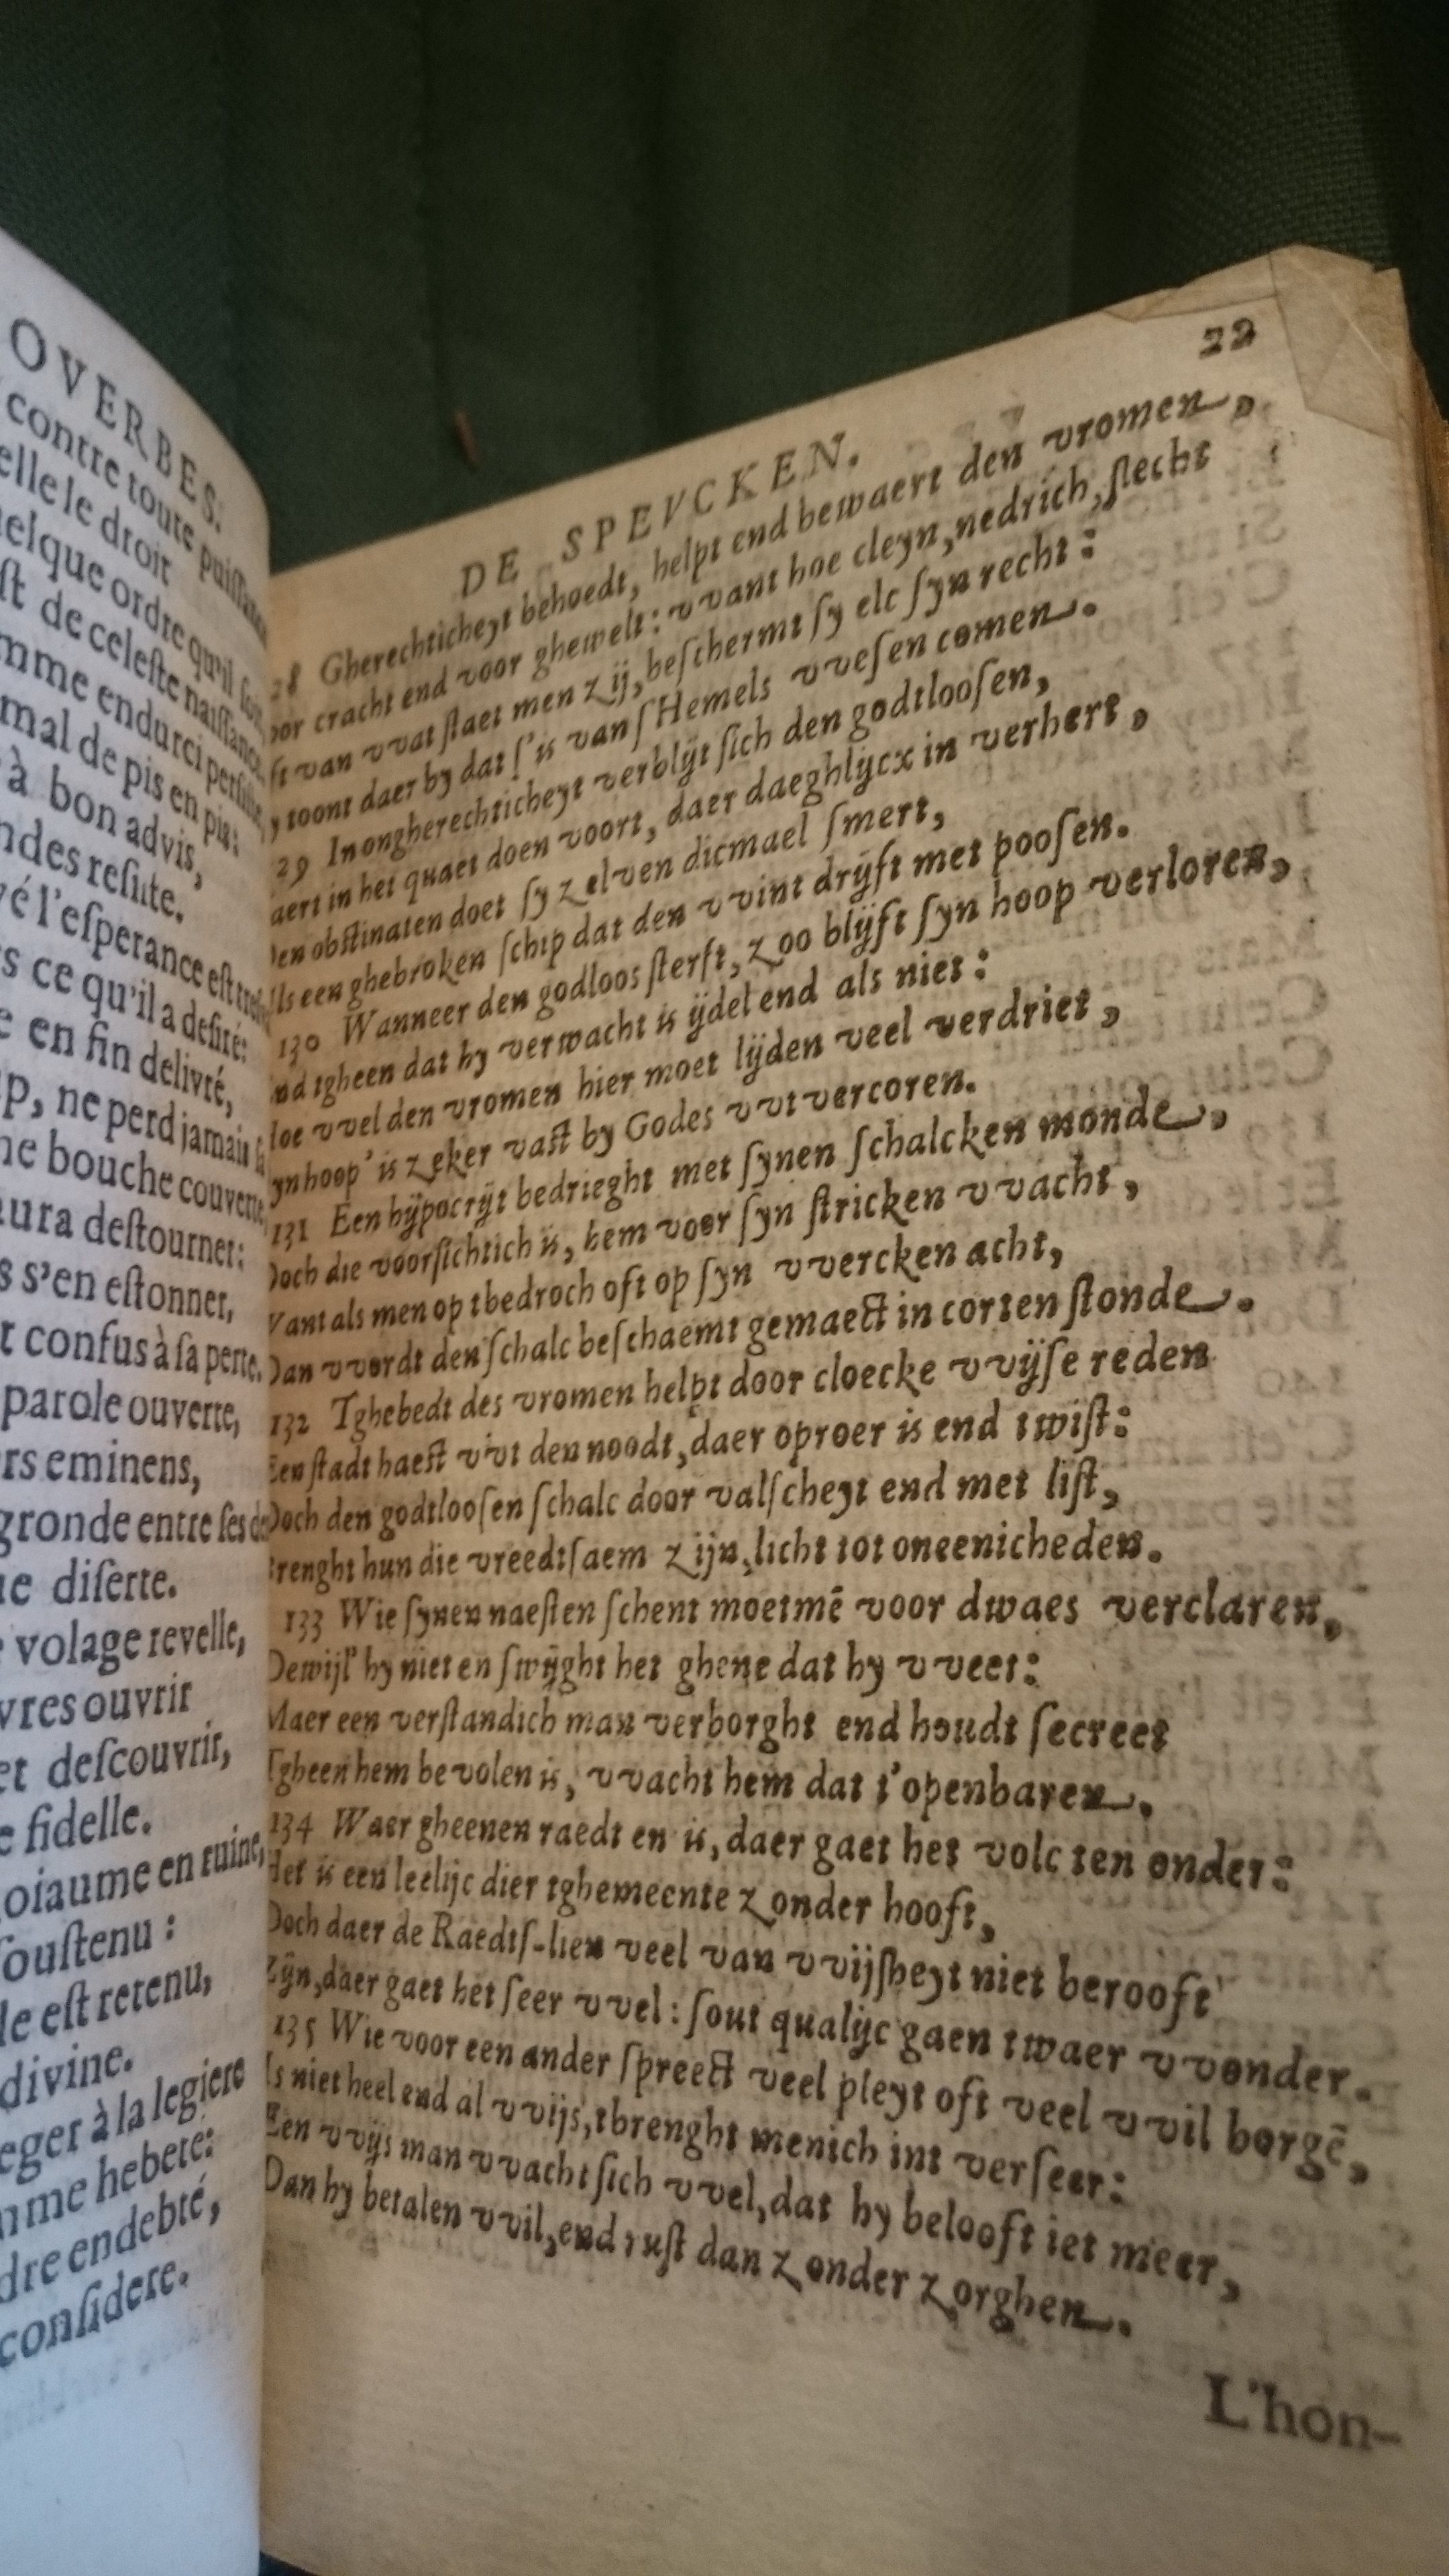 OVERBES.
contre toute puissance
elle le droit
elque ordre qu'il soit
de celeste naissance.
endurci
mal de pis en pis:
à bon advis,
refute.
l'esperance est
ce qu'il a desiré:
en fin delivré,
ne perd jamais
bouche couverte
destourner:
s'en estonner,
confus à sa perte.
parole ouverte,
eminens,
gronde entre ses
diserte.
volage revelle,
ouvrir
descouvrir,
fidelle.
en ruine,
soustenu:
est retenu,
divine.
à la legiere
hebeté:
endebté,
considere.
22
DE SPEVCKEN.
28 Gherechticheyt behoedt, helpt end bewaert den vromen,
oor cracht end voor ghewelt: vvant hoe cleyn, nedrich, slecht
ft van vvat staet men zij, beschermt sy elc syn recht:
y toont daer by dat s'is van s'Hemels vvesen comen.
29 In ongherechticheyt verblijt sich den godtloosen,
aert in het quaet doen voort, daer daeghlijcx in verhert,
Den obstinaten doet sy zelven dicmael smert,
Als een ghebroken schip dat den vvint drijft met poosen.
130 Wanneer den godloos sterft, zoo blijft syn hoop verloren,
nd tgheen dat hy verwacht is ijdel end als niet:
Hoe vvel den vromen hier moet lijden veel verdriet,
ynhoop' is zeker vast by Godes vvtvercoren.
131 Een hijpocrijt bedrieght met synen schalcken monde,
Doch die voorsichtich is, hem voor syn stricken vvacht,
Vant als men op tbedroch oft op syn vvercken acht,
Dan vvordt den schalc beschaemt gemaect in corten stonde.
132 Tghebedt des vromen helpt door cloecke vvijse reden
Een stadt haest vvt den noodt, daer oproer is end twist:
Doch den godtloosen schalc door valscheyt end met list,
Brenght hun die vreedtsaem zijn, licht tot oneenicheden.
133 Wie synen naesten schent moetmē voor dwaes verclaren,
Dewijl' hy niet en swijght het ghene dat hy vveet:
Maer een verstandich man verborght end houdt secreet
Tgheen hem bevolen is, vvacht hem dat t'openbaren.
134 Waer gheenen raedt en is, daer gaet het volc ten onder:
Het is een leelijc dier tghemeente zonder hooft,
Doch daer de Raedts-lien veel van vvijsheyt niet berooft
Zijn, daer gaet het seer vvel: sout qualijc gaen twaer vvonder.
135 Wie voor een ander spreect veel pleyt oft veel vvil borgē,
Is niet heel end al vvijs, tbrenght menich int verseer:
Een vvijs man vvacht sich vvel, dat hy belooft iet meer,
Dan hy betalen vvil, end rust dan zonder zorghen.
L'hon-